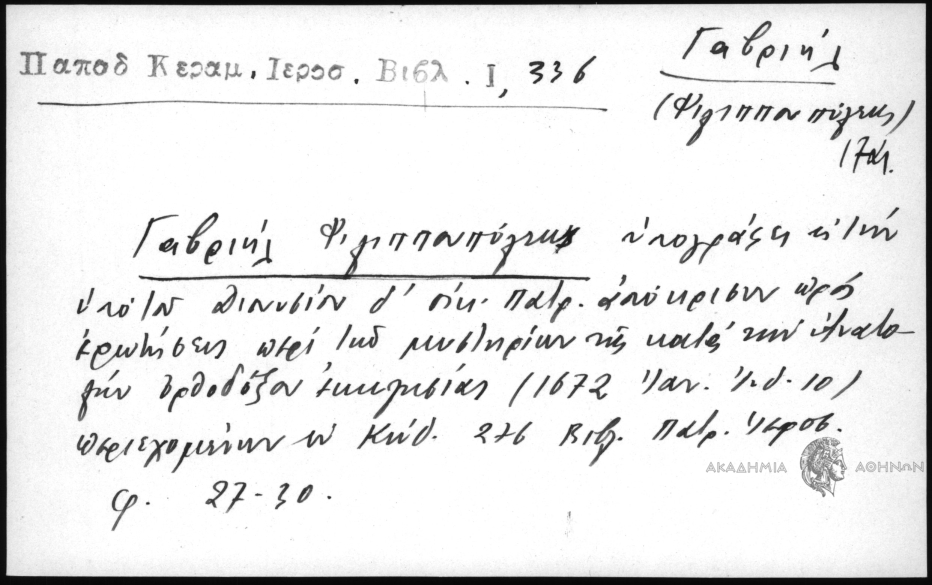 Παποδ Κεραμ. Ιεροσ. Βιβλ. Ι, 336
Γαβριήλ
(Φιλιππουπόλεως)
17 αι.
Γαβριήλ Φιλιππουπόλεως ὑπογράφει εἰς τὴν
ὑπὸ τοῦ Διονυσίου δ' οἰκ. πατρ. ἀπόκρισιν πρὸς
ἐρωτήσεις περὶ τῶν μυστηρίων τῆς κατὰ τὴν Ἀνατο-
λὴν ὀρθοδόξου ἐκκλησίας (1672 Ἰαν. ἰνδ. 10)
περιεχομένην ἐν Κώδ. 276 Βιβλ. Πατρ. Ἱεροσ.
φ. 27-30.
ΑΚΑΔΗΜΙΑ ΑΘΗΝΩΝ